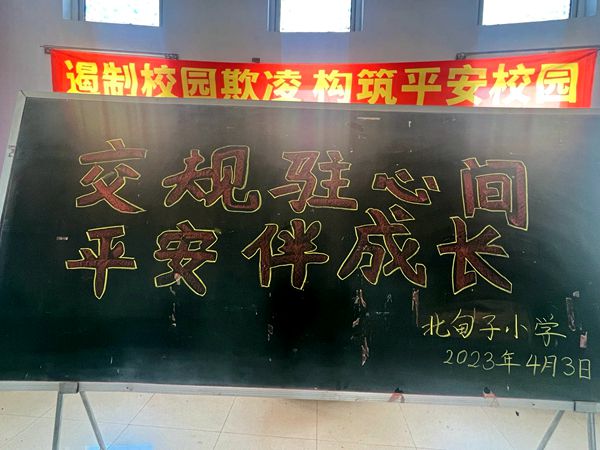 遏制校园欺凌 构筑平安校园
交规驻心间
平安伴成长
北甸子小学
2023年4月3日